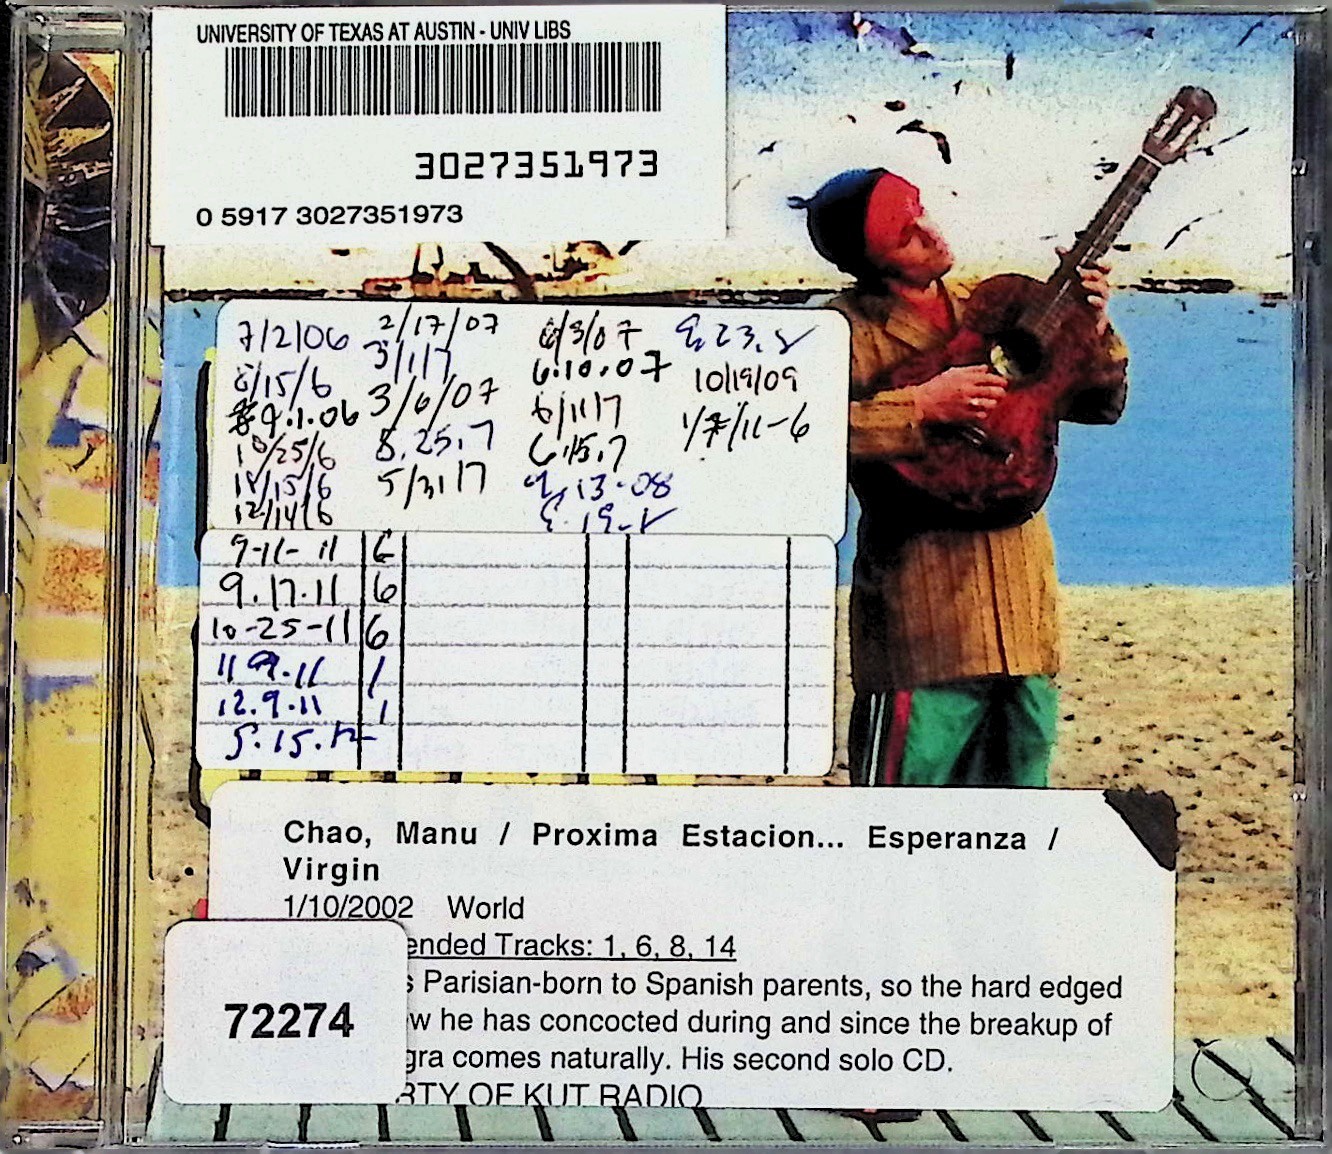 UNIVERSITY OF TEXAS AT AUSTIN - UNIV LIBS
3027351973
0 5917 3027351973
7/2/06
8/15/6
9.1.06
10/25/6
11/15/6
12/14/6
2/17/07
3/1/7
3/6/07
5.25.7
5/31/7
6/3/07
6.10.07
6/11/7
6.15.7
13-08
9.23.
10/19/09
1/7/11-6
9-11-11 6
9.17.11 6
10-25-11 6
11 9.11 1
12.9.11 1
5.15.12
Chao, Manu / Proxima Estacion... Esperanza /
Virgin
1/10/2002 World
ended Tracks: 1, 6, 8, 14
s Parisian-born to Spanish parents, so the hard edged
w he has concocted during and since the breakup of
gra comes naturally. His second solo CD.
RTY OF KUT RADIO
72274